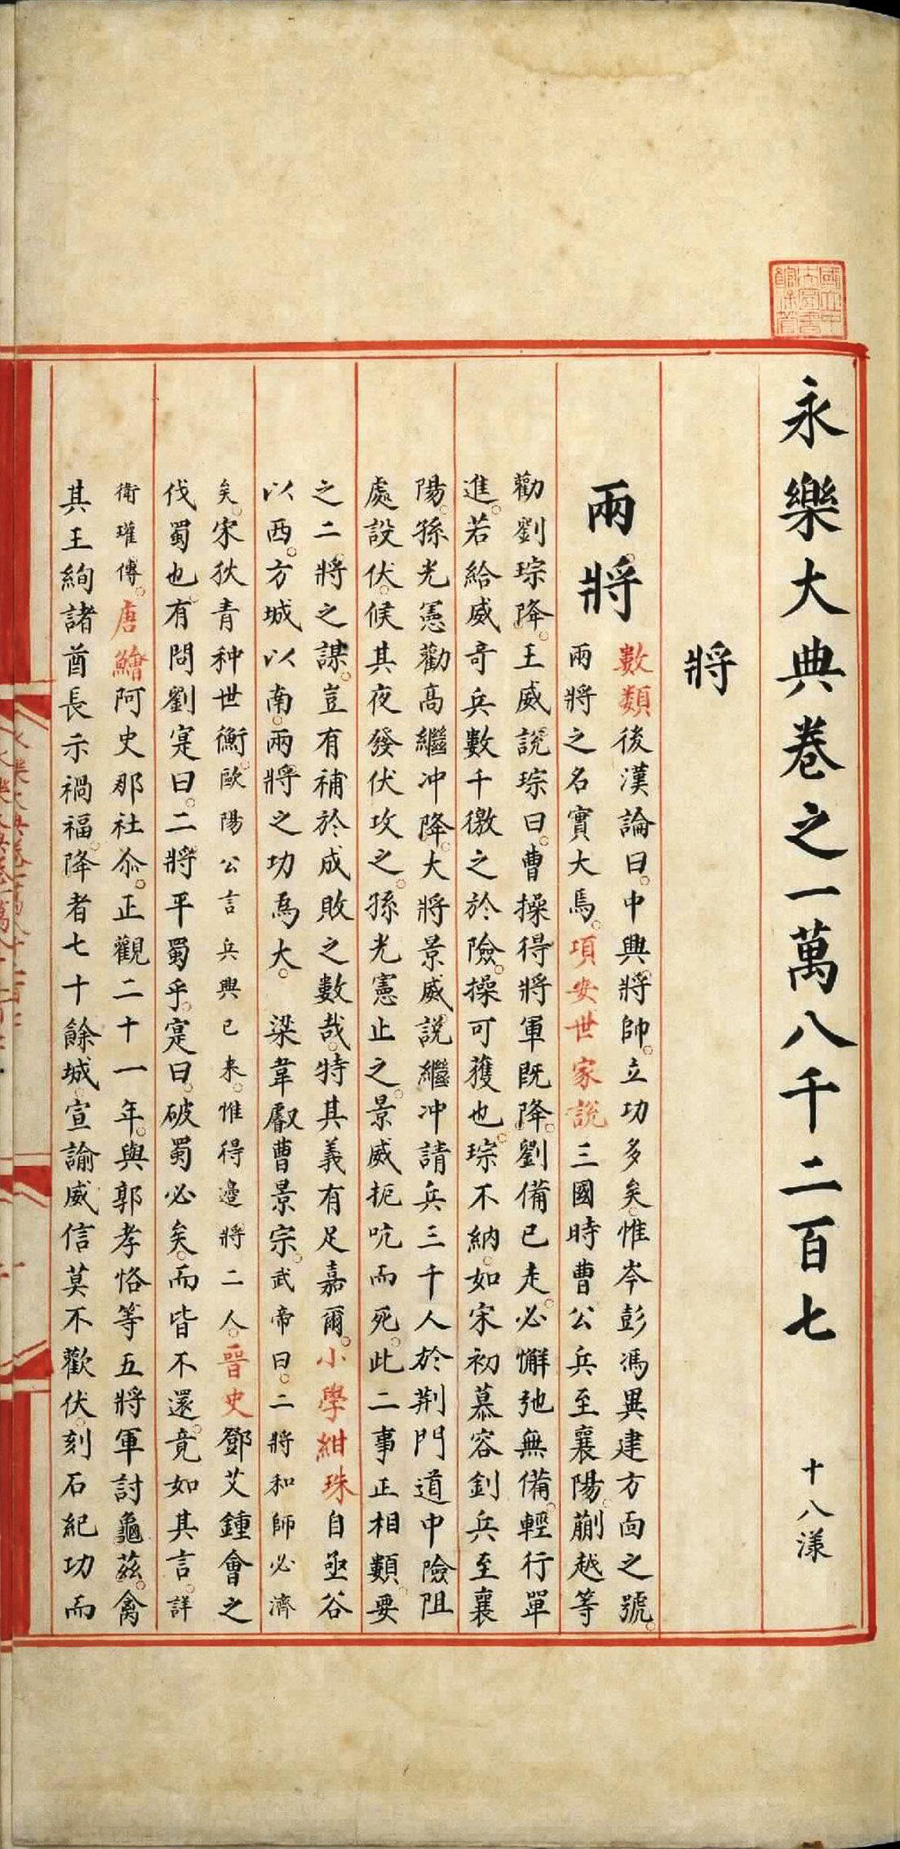 永樂大典卷之一萬八千二百七 十八漾
將
兩將
數類後漢論曰中興將帥立功多矣惟岑彭馮異建方面之號
兩將之名實大焉項安世家說三國時曹公兵至襄陽蒯越等
勸劉琮降王威說琮曰曹操得將軍既降劉備已走必懈弛無備輕行單
進若給威奇兵數千徼之於險操可獲也琮不納如宋初慕容釗兵至襄
陽孫光憲勸高繼冲降大將景威說繼冲請兵三千人於荆門道中險阻
處設伏候其夜發伏攻之孫光憲止之景威扼吭而死此二事正相類要
之二將之謀豈有補於成敗之數哉特其義有足嘉爾小學紺珠自亟谷
以西方城以南兩將之功為大 梁韋叡曹景宗武帝曰二將和師必濟
矣宋狄青种世衡歐陽公言兵興已来惟得邊將二人晉史鄧艾鍾會之
伐蜀也有問劉寔曰二將平蜀乎寔曰破蜀必矣而皆不還竟如其言詳
衛瓘傳唐鱠阿史那社尒正觀二十一年與郭孝恪等五將軍討龜茲禽
其王絢諸酋長示禍福降者七十餘城宣諭威信莫不歡伏刻石紀功而